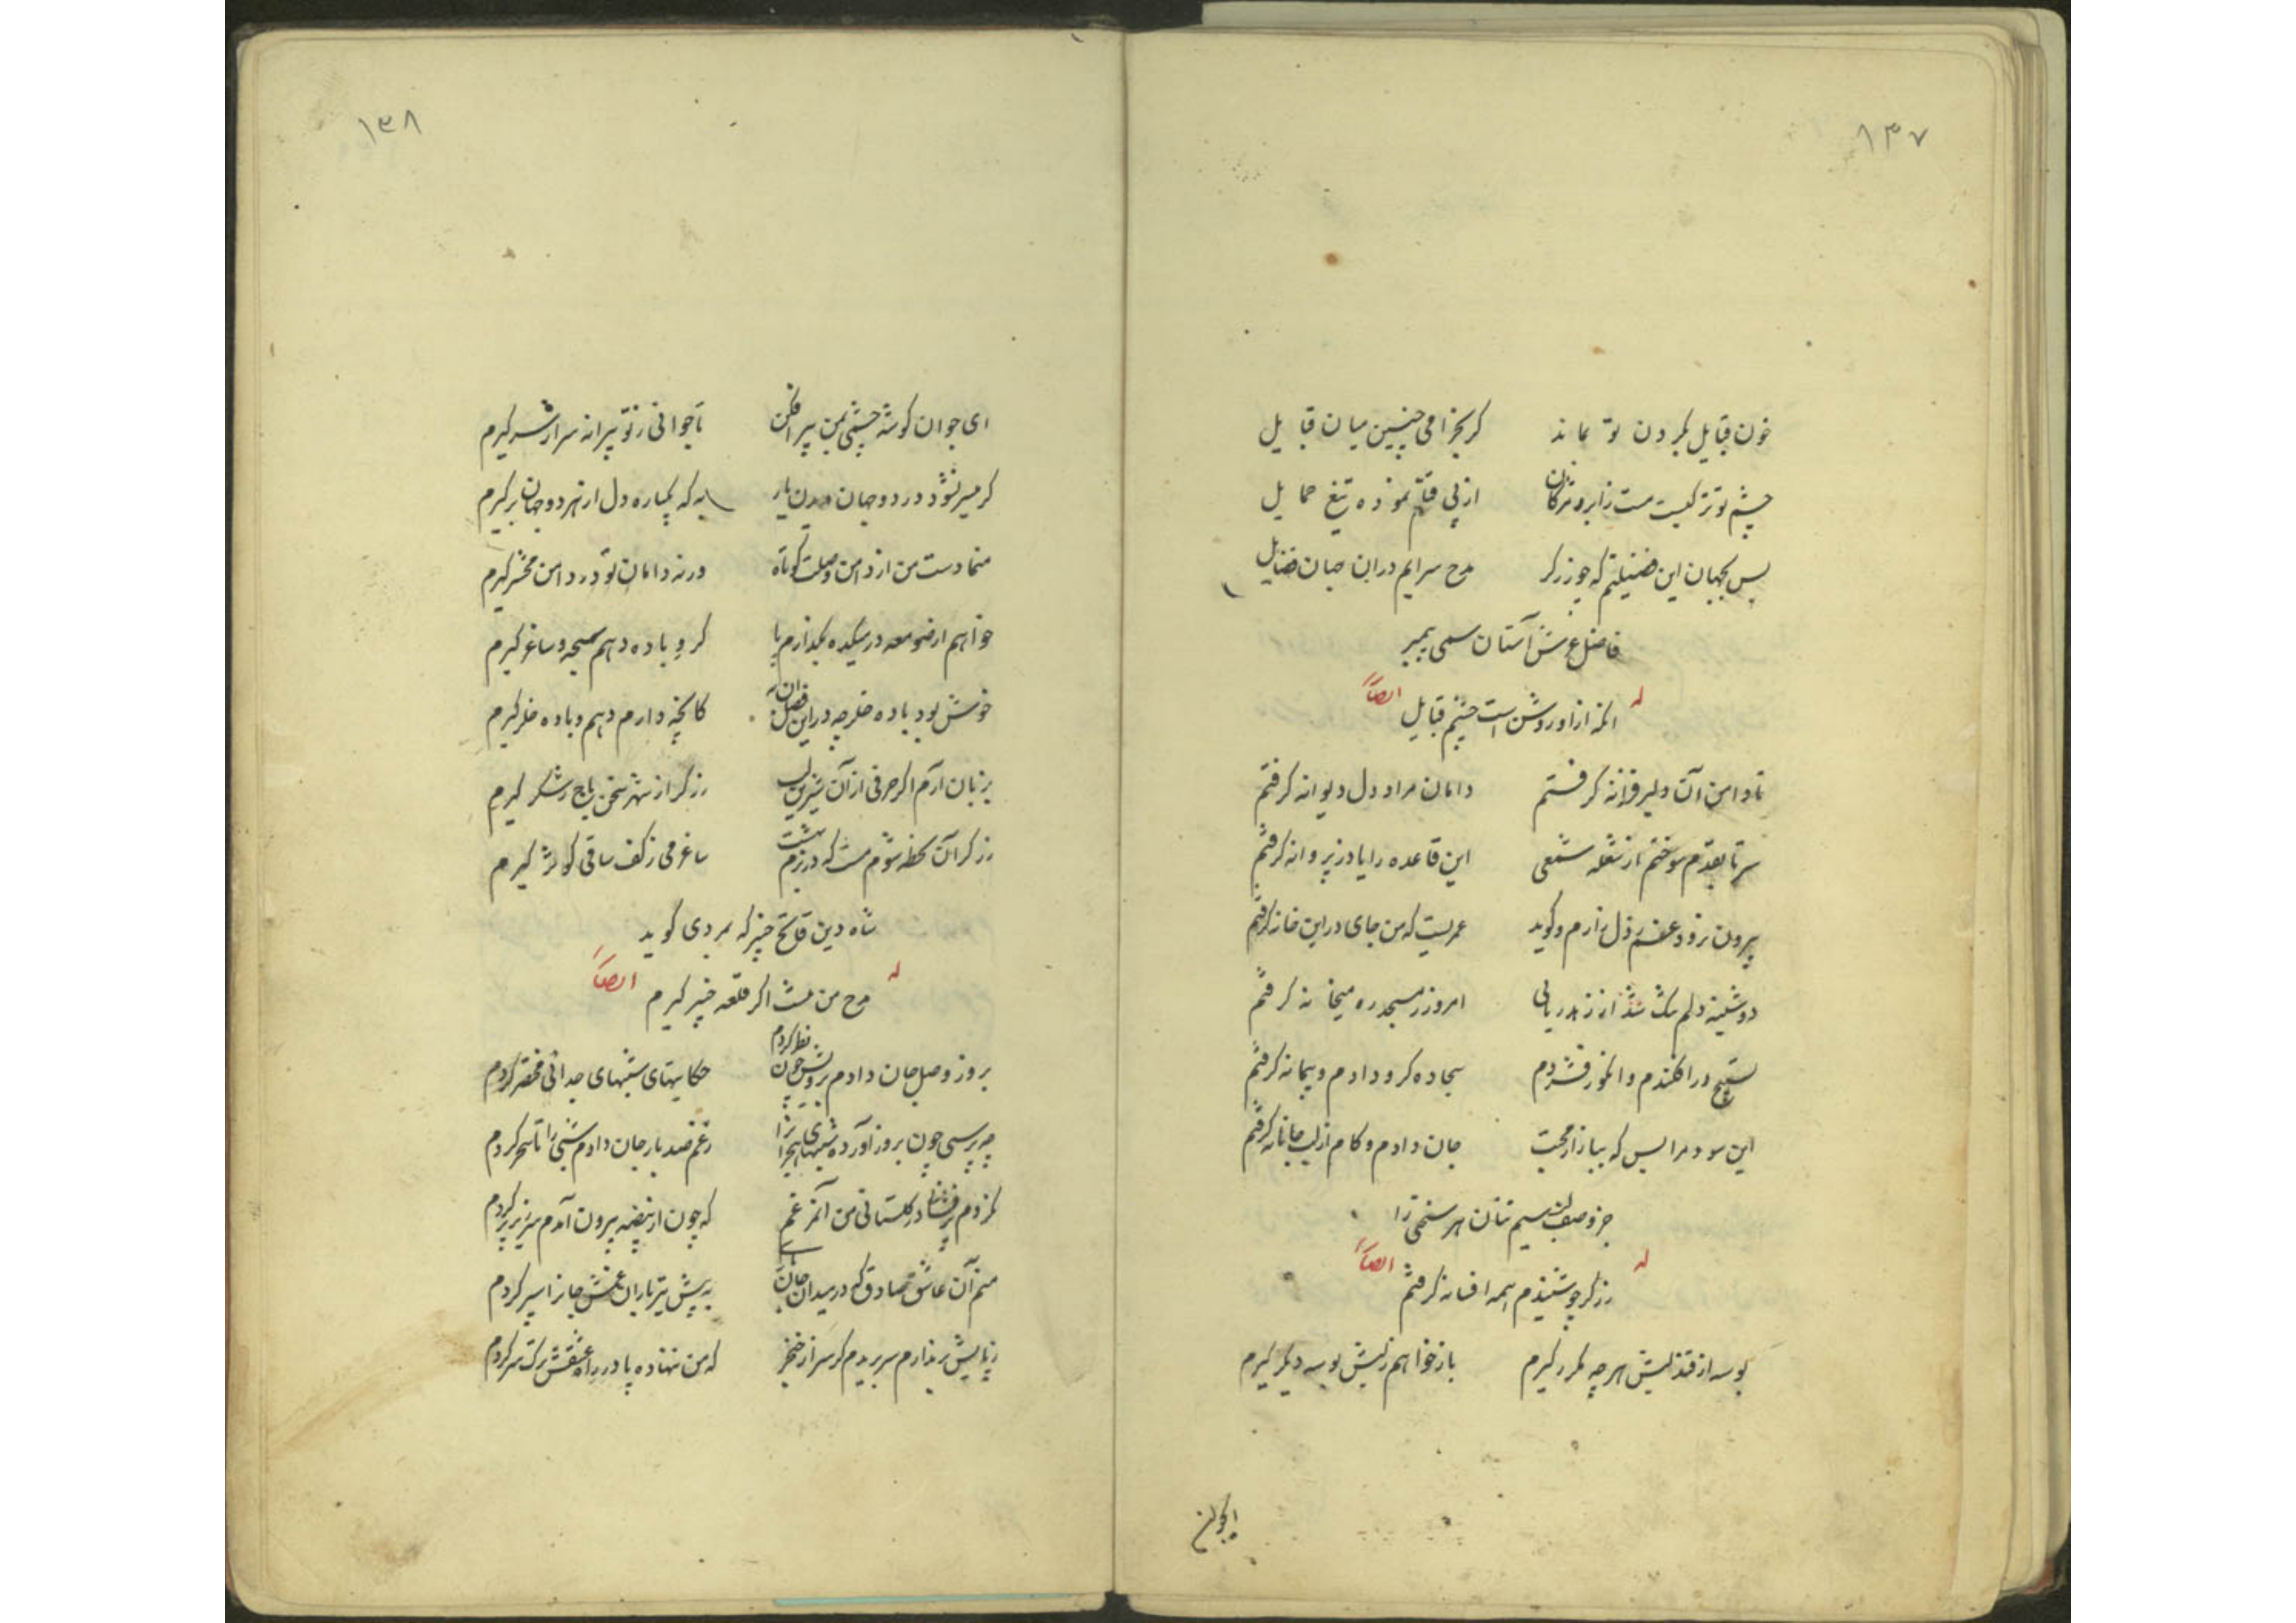 ۱۳۷
خون قبایل بگردن تو بماند گر بخرامی چنین میان قبایل
چشم تو ترکیست مست زابرو و مژگان از پی قتلم نموده تیغ حمایل
بس بجهان این فضیلتم که چو زرگر مدح سرایم در این جهان فضایل
فاضل عرش آستان سمی پیمبر
له ایضاً
انکه ازاو روشن است چشم قبایل
تا دامن آن دلبر فرزانه گرفتم دامان مراد دل دیوانه گرفتم
سر تا بقدم سوختم از شعله شمعی این قاعده را یاد ز پروانه گرفتم
بیرون نرود عشق ز دل زارم و گوید عمریست که من جای در این خانه گرفتم
دوشینه دلم تنک شد از زهد ریائی امروز ز مسجد ره میخانه گرفتم
تسبیح درافکندم و انگور فشردم سجاده گرو دادم و پیمانه گرفتم
این سود مرا بس که ببازار محبت جان دادم و کام از لب جانانه گرفتم
جز وصف لب سیم تنان هر سخنی را
له ایضاً
زرگر چو شنیدم همه افسانه گرفتم
بوسه از قند لبش هر چه مکرر گیرم باز خواهم ز لبش بوسه دیگر گیرم
ایجوان
۱۳۸
ای جوان گوشه چشمی بمن پیر افکن تا جوانی ز تو پیرانه سر از سر گیرم
گر میسر نشود در دو جهان دیدن یار به که یکباره دل از هر دو جهان برگیرم
منما دست من از دامن وصلت کوتاه ورنه دامان تو در دامن محشر گیرم
خواهم از صومعه در میکده بگذارم پا گرو باده دهم سبحه و ساغر گیرم
خوش بود باده خلر چه در این فصل آن کانچه دارم دهم و باده خلر گیرم
بزبان آرم اگر حرفی از آن شیرین لب زرگر از شهر سخن باج ز شکر گیرم
زرگر آن لحظه شوم مست که در بزم بهشت ساغر می ز کف ساقی کوثر گیرم
شاه دین فاتح خیبر که بمردی گوید
له ایضاً
مدح من هست اگر قلعه خیبر گیرم
بروز وصل جان دادم برویش چون نظر کردم حکایتهای شبهای جدائی مختصر کردم
چه پرسی چون بروز آورده شبهای هجرانرا ز غم صد بار جان دادم شبی را تا سحر کردم
نکردم پرفشانی در گلستانی من آنمرغم که چون از بیضه بیرون آمدم سر زیر پر کردم
منم آن عاشق صادق که در میدان جانبازی به پیش تیرباران غمش جانرا سپر کردم
ز پایش بر ندارم سر بریدم گر سر از خنجر که من ننهاده پا در راه عشقش ترک سر کردم